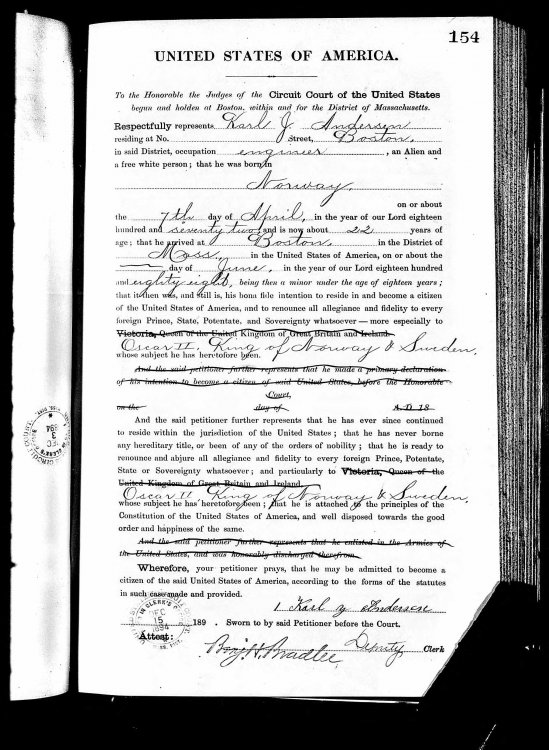 154
UNITED STATES OF AMERICA.
To the Honorable the Judges of the Circuit Court of the United States
begun and holden at Boston, within and for the District of Massachusetts.
Respectfully represents Karl J. Andersen
residing at No. Street, Boston,
in said District, occupation engineer, an Alien and
a free white person; that he was born in
Norway,
on or about
the 7th day of April, in the year of our Lord eighteen
hundred and seventy two, and is now about 22 years of
age; that he arrived at Boston, in the District of
Mass., in the United States of America, on or about the
day of June, in the year of our Lord eighteen hundred
and eighty eight, being then a minor under the age of eighteen years;
that it then was, and still is, his bona fide intention to reside in and become a citizen
of the United States of America, and to renounce all allegiance and fidelity to every
foreign Prince, State, Potentate, and Sovereignty whatsoever — more especially to
Victoria, Queen of the United Kingdom of Great Britain and Ireland
Oscar II, King of Norway & Sweden,
whose subject he has heretofore been.
And the said petitioner further represents that he made a primary declaration
of his intention to become a citizen of said United States, before the Honorable
Court,
on the day of A.D 18
And the said petitioner further represents that he has ever since continued
to reside within the jurisdiction of the United States; that he has never borne
any hereditary title, or been of any of the orders of nobility; that he is ready to
renounce and abjure all allegiance and fidelity to every foreign Prince, Potentate,
State or Sovereignty whatsoever; and particularly to Victoria, Queen of the
United Kingdom of Great Britain and Ireland,
Oscar II King of Norway & Sweden,
whose subject he has heretofore been; that he is attached to the principles of the
Constitution of the United States of America, and well disposed towards the good
order and happiness of the same.
And the said petitioner further represents that he enlisted in the Armies of
the United States, and was honorably discharged therefrom.
Wherefore, your petitioner prays, that he may be admitted to become a
citizen of the said United States of America, according to the forms of the statutes
in such case made and provided.
Karl J Andersen
IN CLERK'S
DEC
15
1894
189 . Sworn to by said Petitioner before the Court.
Attest:
Benj. H. Bradlee Deputy Clerk